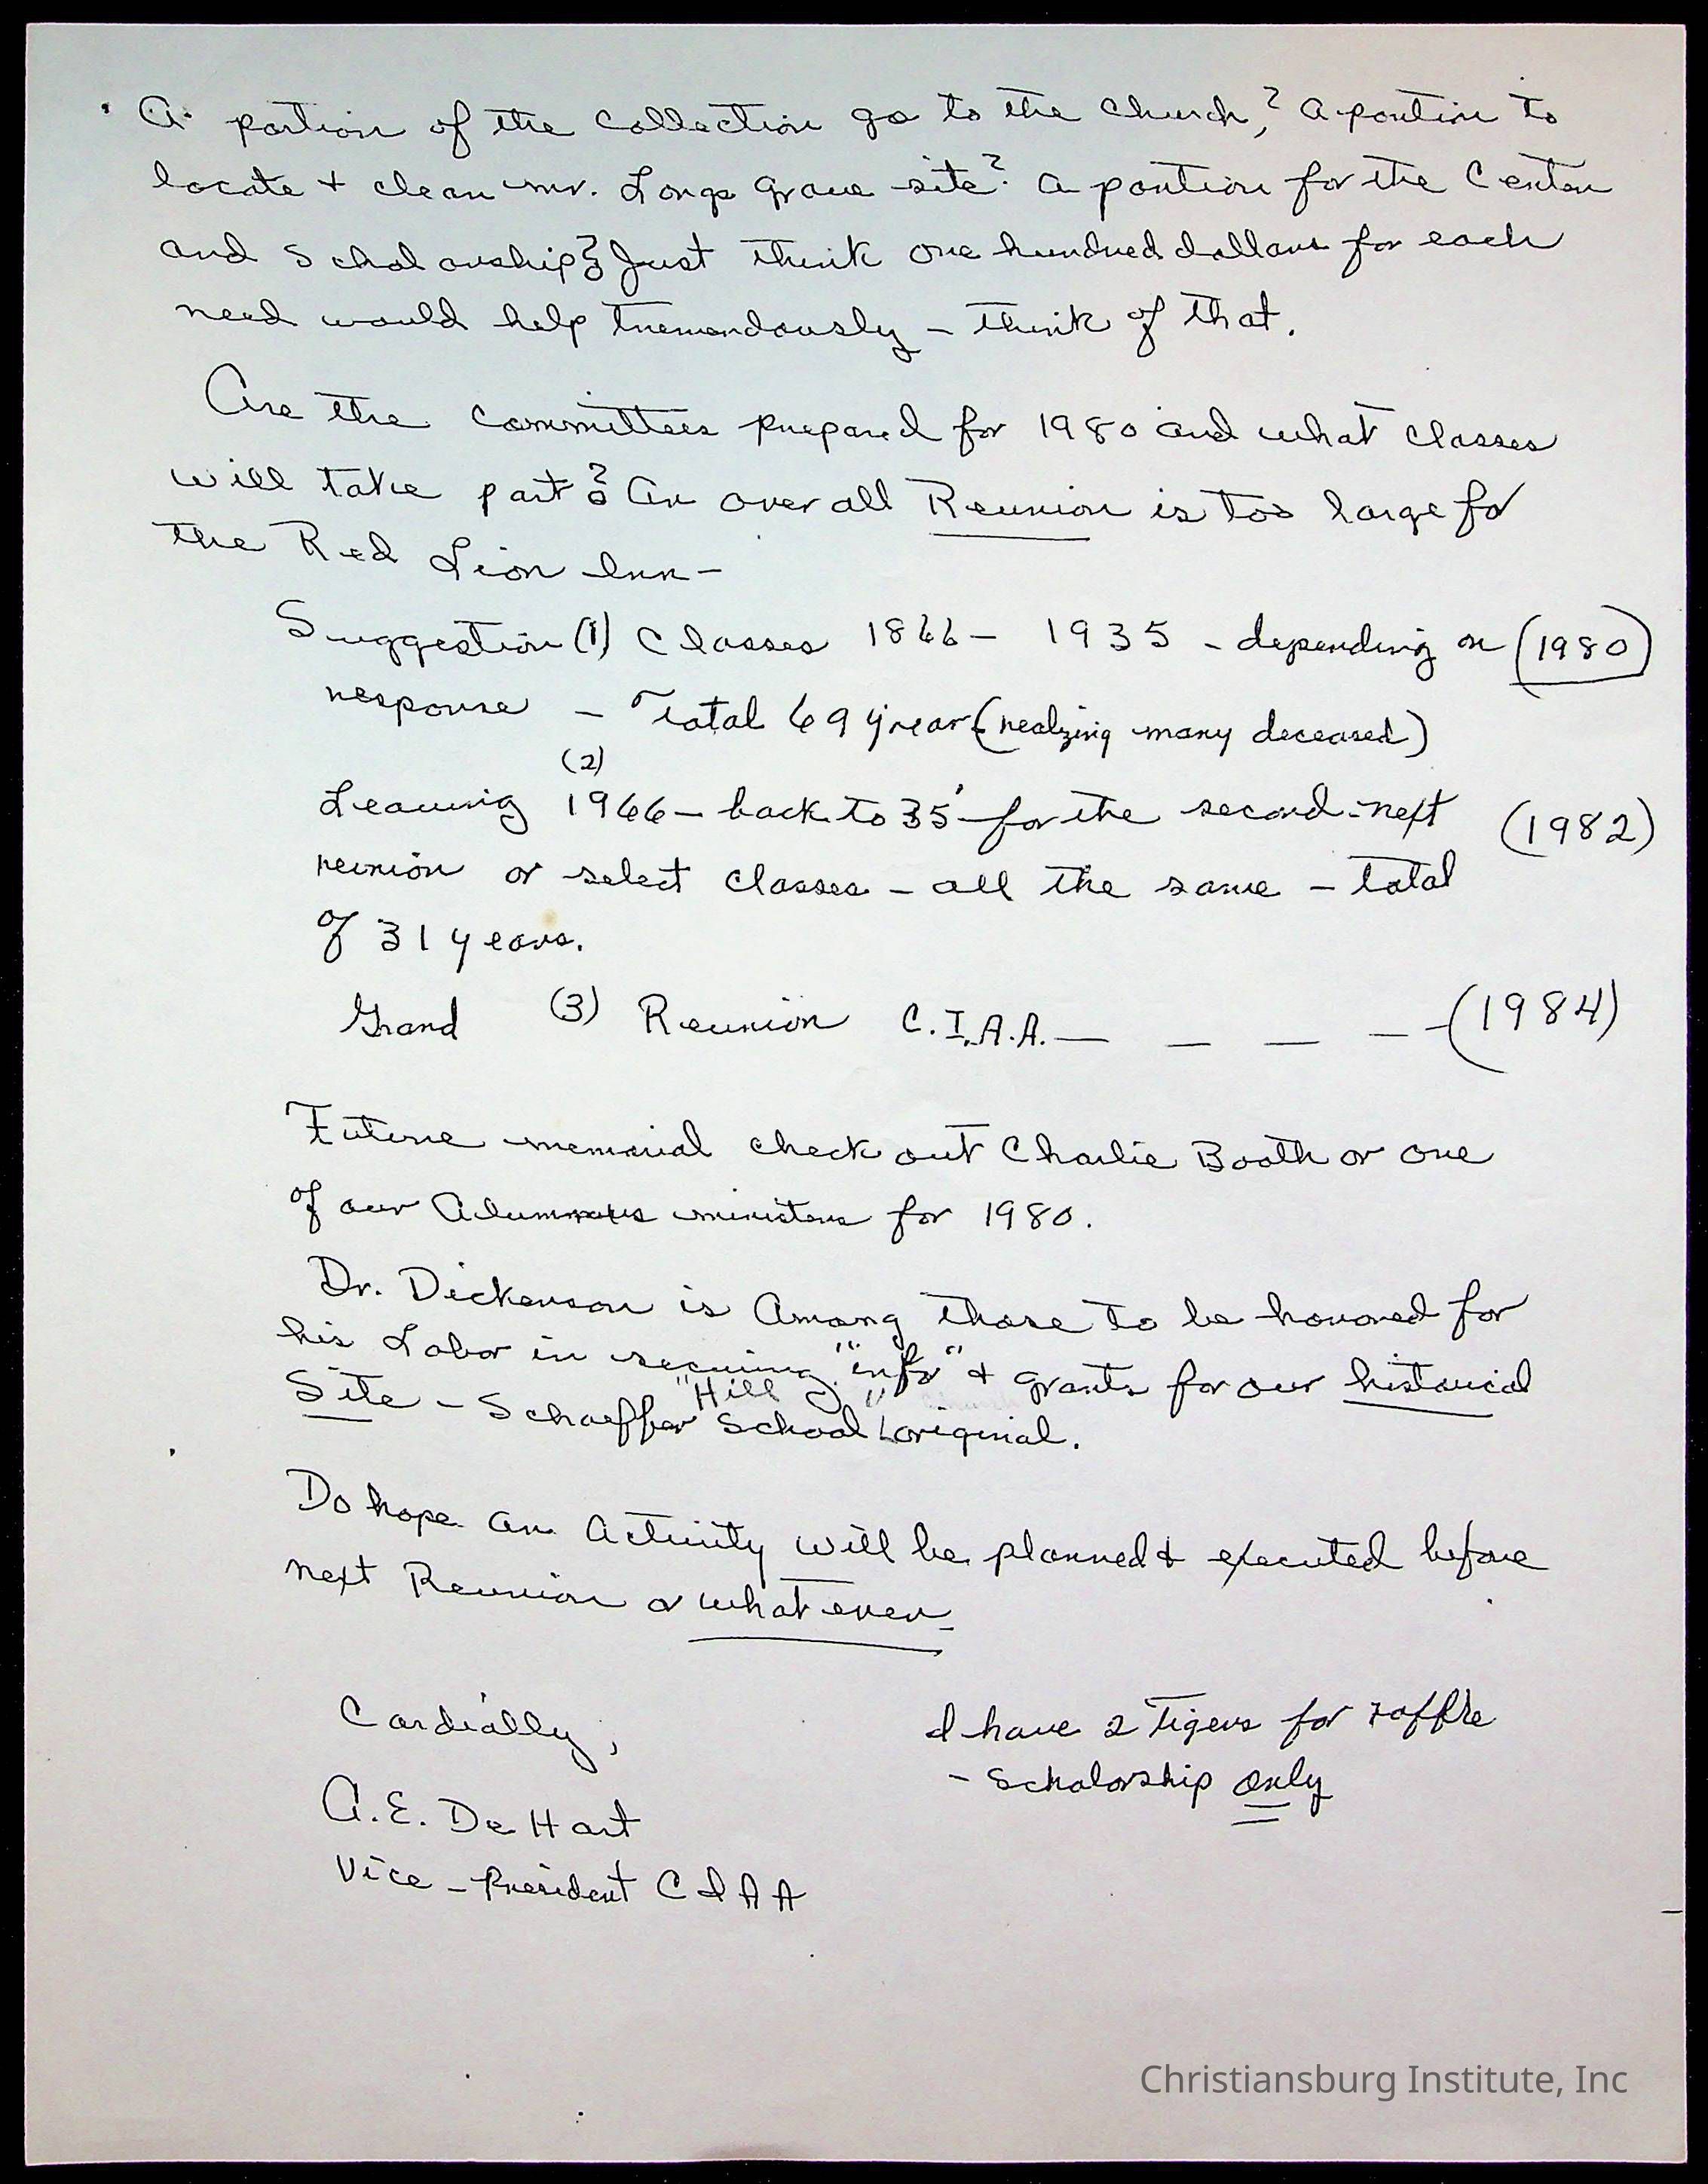 A portion of the collection go to the Church,? A portion to
locate + clean mr. Longs grave site? a portion for the Center
and Scholarship? Just think one hundred dollars for each
need would help tremendously – think of that.
Are the committees prepared for 1980 and what classes
will take part? An over all Reunion is too large for
the Red Lion Inn –
Suggestion (1) Classes 1866 – 1935 – depending on (1980)
response – Total 69 year (realizing many deceased)
(2)
Leaving 1966 – back to 35' for the second – next (1982)
reunion or select classes – all the same – total
of 31 years.
Grand (3) Reunion C.I.A.A. — — — — (1984)
Future memorial check out Charlie Booth or one
of our ministers for 1980.
Dr. Dickerson is Among those to be honored for
his Labor in securing "info" + grants for our historical
Site – Schaeffer "Hill School" original.
Do hope an Activity will be planned & executed before
next Reunion or what ever –
Cordially,
A.E. De Hart
Vice – President C I A A
I have 2 Tigers for raffle
– Scholarship only
Christiansburg Institute, Inc